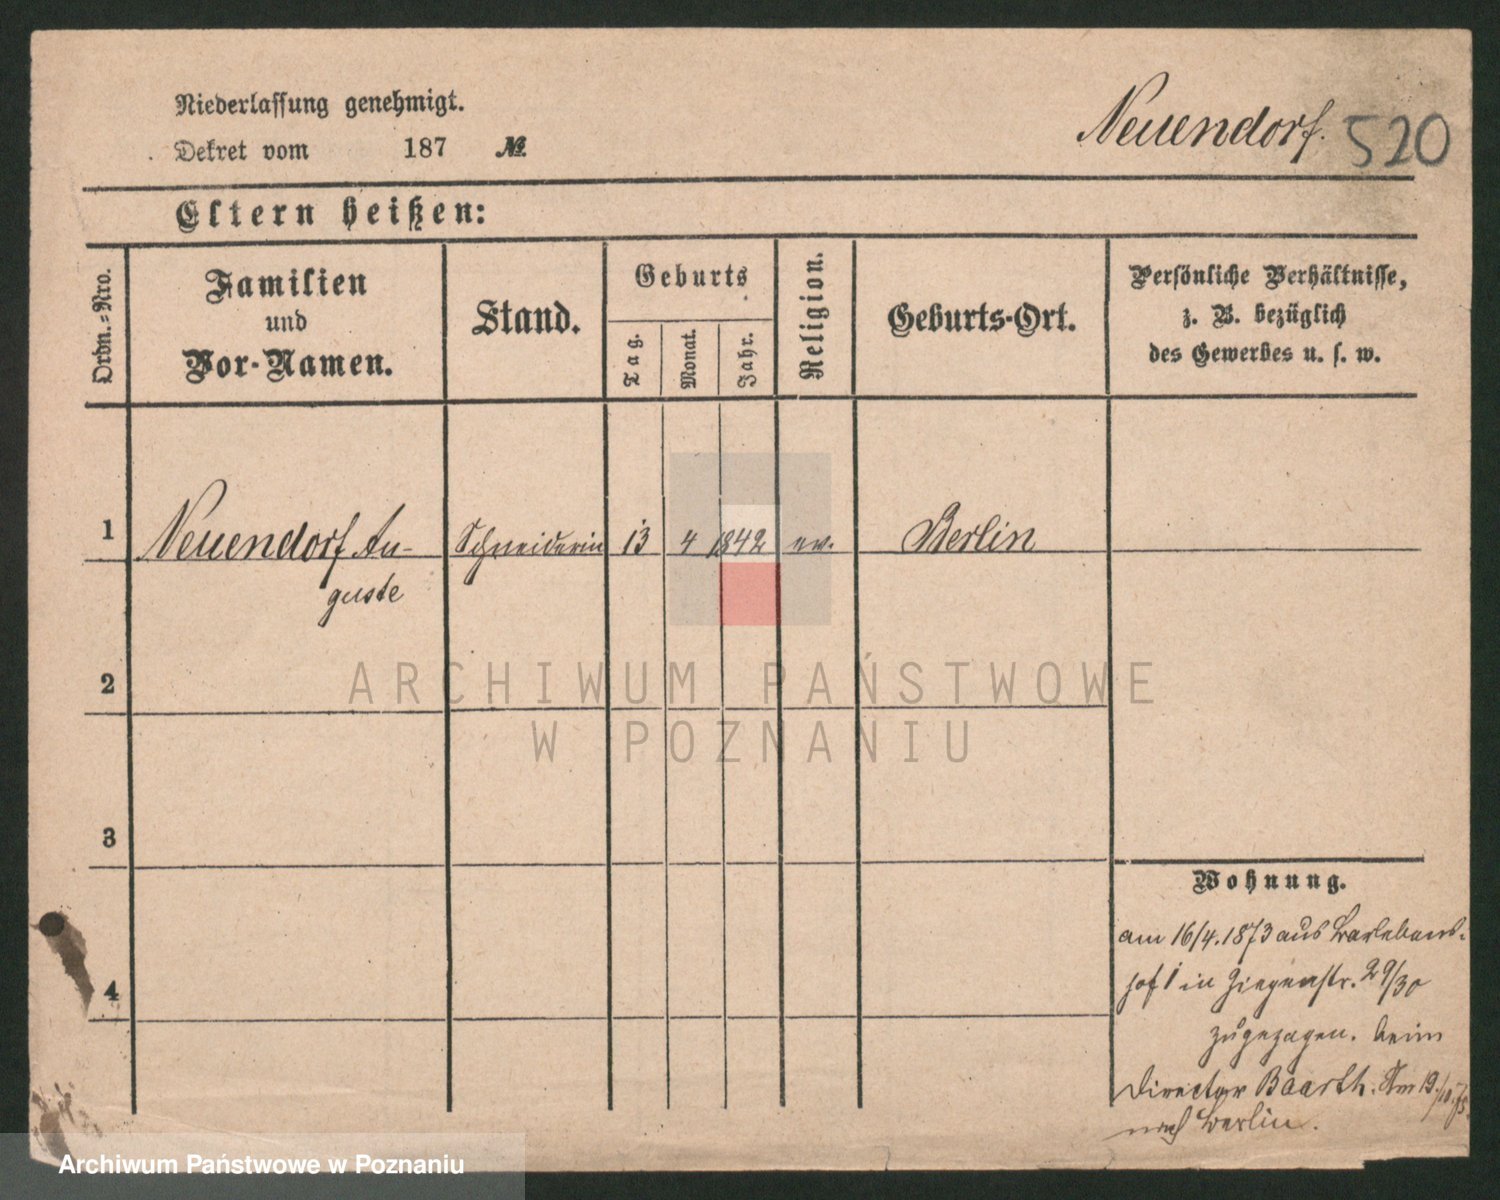 Niederlassung genehmigt.
Dekret vom 187 №
Neuendorf. 520
Eltern heißen:
Ordn.-Nro.
Familien
und
Vor-Namen.
Stand.
Geburts
Tag.
Monat.
Jahr.
Religion.
Geburts-Ort.
Persönliche Verhältnisse,
z. B. bezüglich
des Gewerbes u. s. w.
1 Neuendorf Au- Schneiderin 13 4 1842 ev. Berlin
guste
2
ARCHIWUM PAŃSTWOWE
W POZNANIU
3
Wohnung.
am 16/4.1873 aus
hof 1 in Ziegenstr. 29/30
4
zugezogen. beim
Director Baarth. Am 19/10.75
nach Berlin.
Archiwum Państwowe w Poznaniu